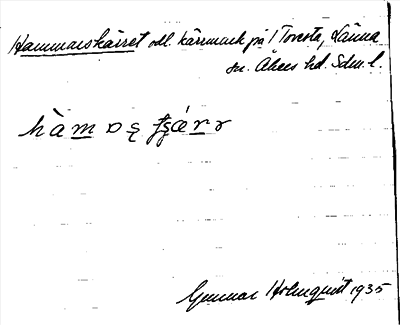 Hammarskärret odl. kärrmark på 1 Toresta, Länna
sn. Åkers hd. Sdm. l.
hàmɒʂ ʈʂǽrr
Gunnar Holmquist 1935